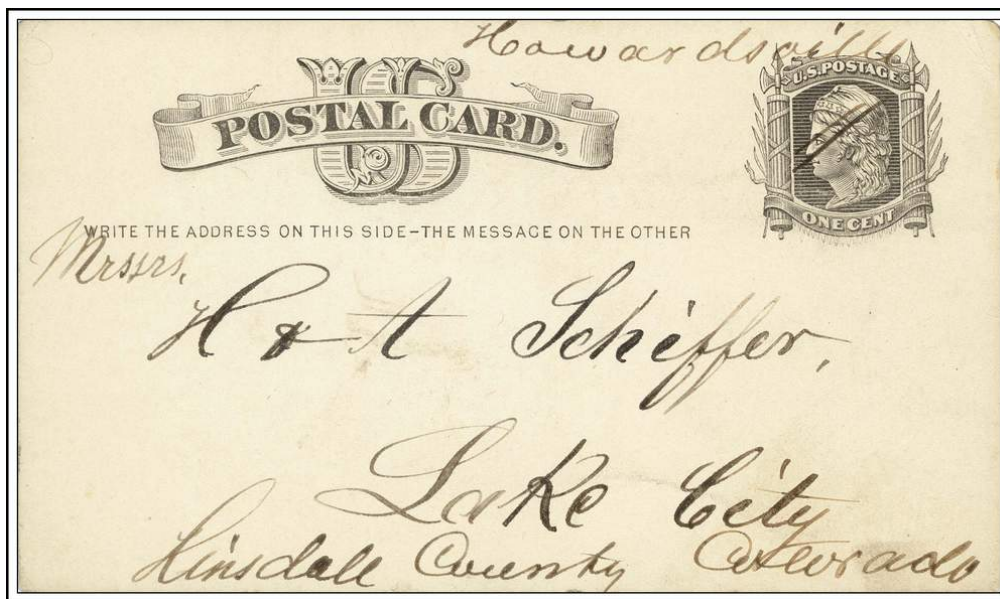 Howardsville
U.S. POSTAGE
US
POSTAL CARD.
ONE CENT
WRITE THE ADDRESS ON THIS SIDE-THE MESSAGE ON THE OTHER
Messrs.
H & A Schiffer,
Lake City
Hinsdale County Colorado